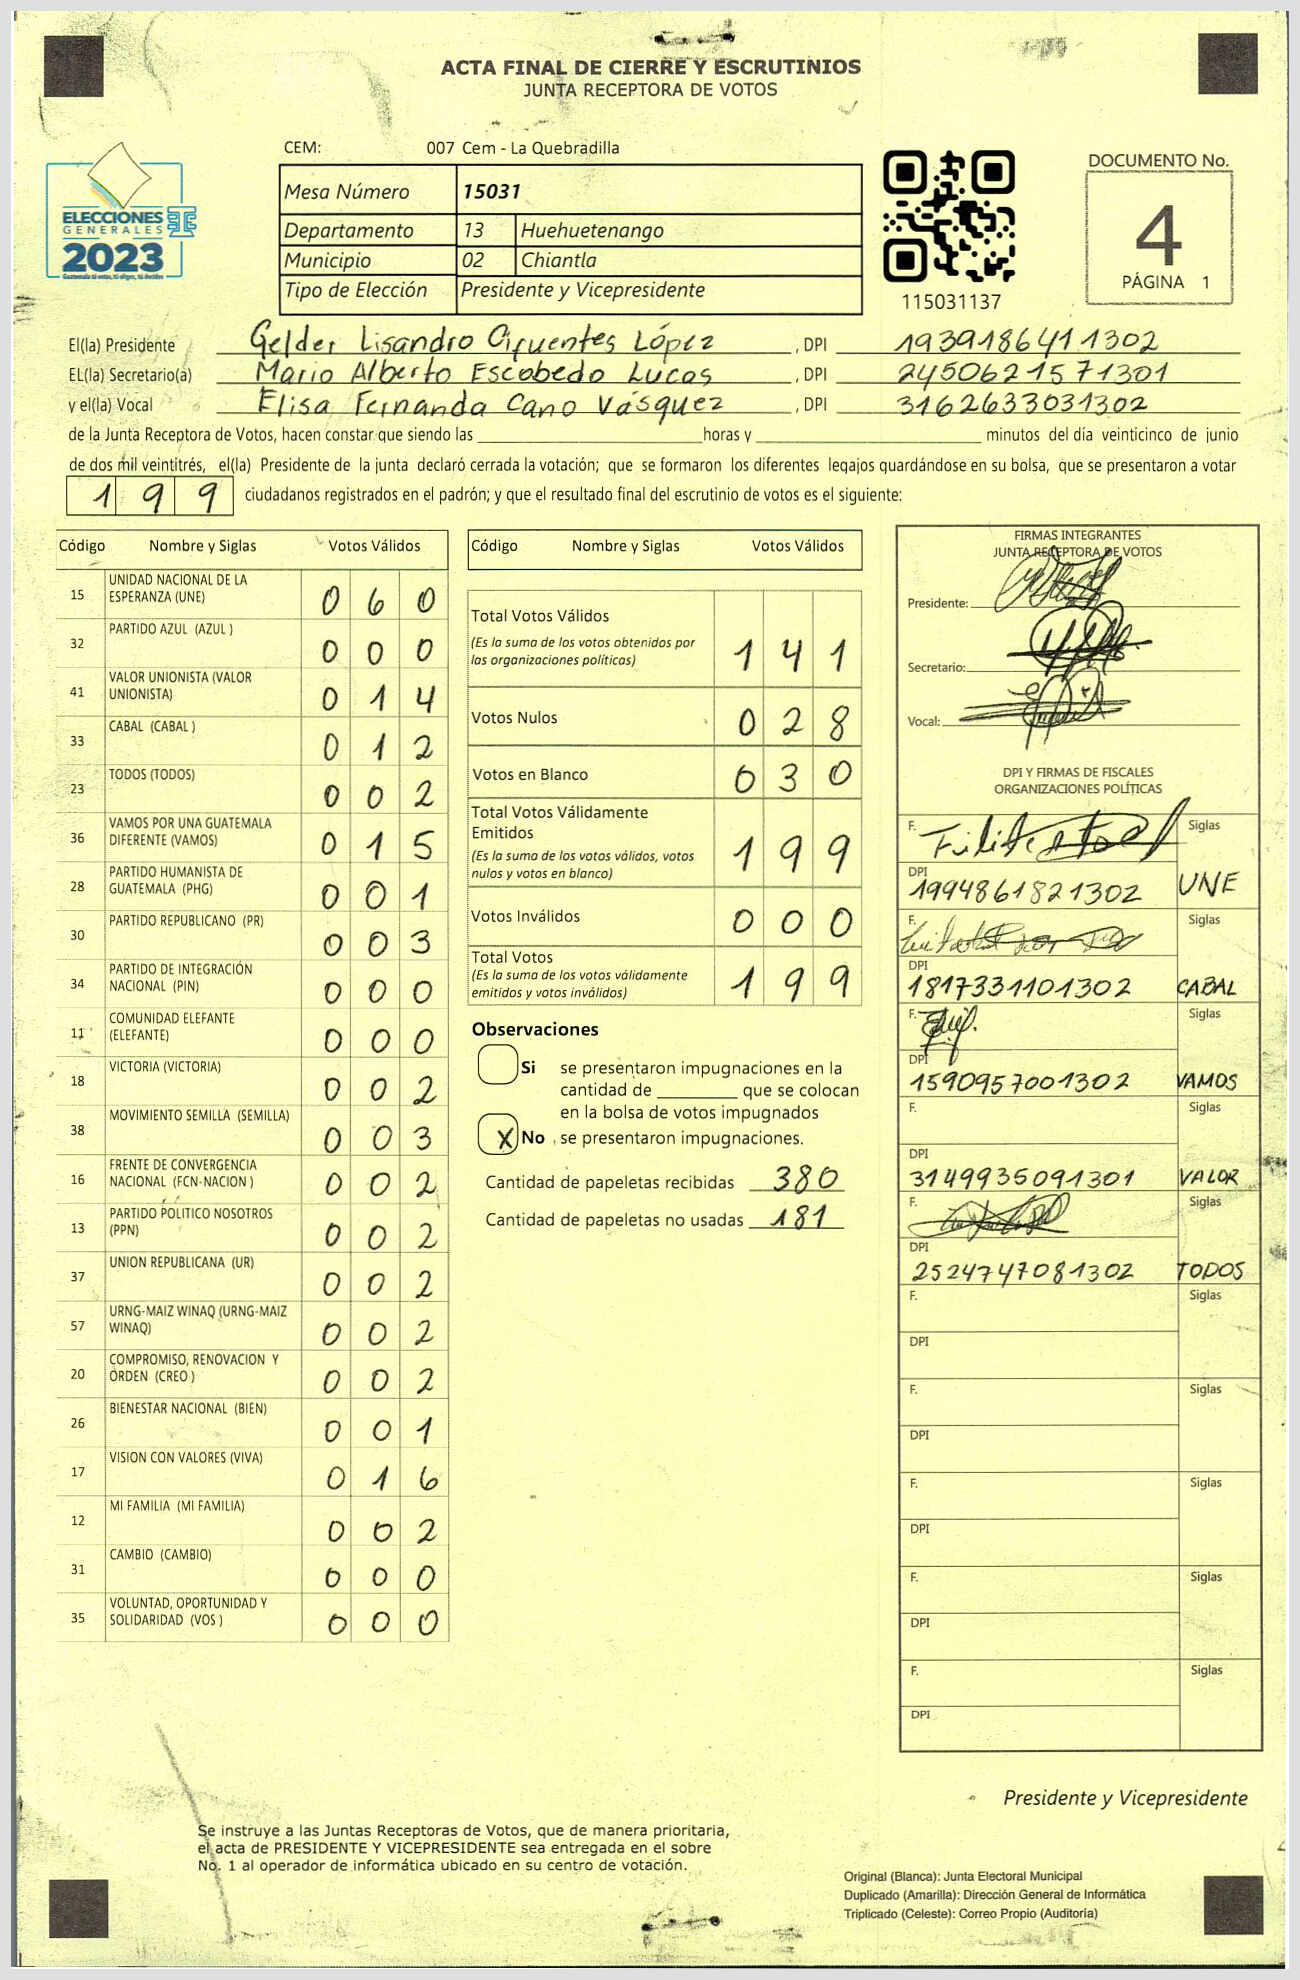 ACTA FINAL DE CIERRE Y ESCRUTINIOS
JUNTA RECEPTORA DE VOTOS
CEM: 007 Cem - La Quebradilla
ELECCIONES
GENERALES
2023
Mesa Número 15031
Departamento 13 Huehuetenango
Municipio 02 Chiantla
Tipo de Elección Presidente y Vicepresidente
115031137
DOCUMENTO No.
4
PÁGINA 1
El(la) Presidente Gelder Lisandro Cifuentes López , DPI 1939186411302
EL(la) Secretario(a) Mario Alberto Escobedo Lucas , DPI 2450621571301
y el(la) Vocal Elisa Fernanda Cano Vásquez , DPI 3162633031302
de la Junta Receptora de Votos, hacen constar que siendo las ____ horas y ____ minutos del día veinticinco de junio
de dos mil veintitrés, el(la) Presidente de la junta declaró cerrada la votación; que se formaron los diferentes legajos guardándose en su bolsa, que se presentaron a votar
199 ciudadanos registrados en el padrón; y que el resultado final del escrutinio de votos es el siguiente:
Código Nombre y Siglas Votos Válidos
15 UNIDAD NACIONAL DE LA ESPERANZA (UNE) 060
32 PARTIDO AZUL (AZUL ) 000
41 VALOR UNIONISTA (VALOR UNIONISTA) 014
33 CABAL (CABAL ) 012
23 TODOS (TODOS) 002
36 VAMOS POR UNA GUATEMALA DIFERENTE (VAMOS) 015
28 PARTIDO HUMANISTA DE GUATEMALA (PHG) 001
30 PARTIDO REPUBLICANO (PR) 003
34 PARTIDO DE INTEGRACIÓN NACIONAL (PIN) 000
11 COMUNIDAD ELEFANTE (ELEFANTE) 000
18 VICTORIA (VICTORIA) 002
38 MOVIMIENTO SEMILLA (SEMILLA) 003
16 FRENTE DE CONVERGENCIA NACIONAL (FCN-NACION ) 002
13 PARTIDO POLITICO NOSOTROS (PPN) 002
37 UNION REPUBLICANA (UR) 002
57 URNG-MAIZ WINAQ (URNG-MAIZ WINAQ) 002
20 COMPROMISO, RENOVACION Y ORDEN (CREO ) 002
26 BIENESTAR NACIONAL (BIEN) 001
17 VISION CON VALORES (VIVA) 016
12 MI FAMILIA (MI FAMILIA) 002
31 CAMBIO (CAMBIO) 000
35 VOLUNTAD, OPORTUNIDAD Y SOLIDARIDAD (VOS ) 000
Código Nombre y Siglas Votos Válidos
Total Votos Válidos 141
(Es la suma de los votos obtenidos por
las organizaciones políticas)
Votos Nulos 028
Votos en Blanco 030
Total Votos Válidamente
Emitidos 199
(Es la suma de los votos válidos, votos
nulos y votos en blanco)
Votos Inválidos 000
Total Votos 199
(Es la suma de los votos válidamente
emitidos y votos inválidos)
Observaciones
Si se presentaron impugnaciones en la
cantidad de ____ que se colocan
en la bolsa de votos impugnados
X No se presentaron impugnaciones.
Cantidad de papeletas recibidas 380
Cantidad de papeletas no usadas 181
FIRMAS INTEGRANTES
JUNTA RECEPTORA DE VOTOS
Presidente:
Secretario:
Vocal:
DPI Y FIRMAS DE FISCALES
ORGANIZACIONES POLÍTICAS
F. Siglas
DPI 1994861821302 UNE
F. Siglas
DPI 1817331101302 CABAL
F. Siglas
DPI 1590957001302 VAMOS
F. Siglas
DPI 3149935091301 VALOR
F. Siglas
DPI 2524747081302 TODOS
F. Siglas
DPI
F. Siglas
DPI
F. Siglas
DPI
F. Siglas
DPI
F. Siglas
DPI
Presidente y Vicepresidente
Se instruye a las Juntas Receptoras de Votos, que de manera prioritaria,
el acta de PRESIDENTE Y VICEPRESIDENTE sea entregada en el sobre
No. 1 al operador de informática ubicado en su centro de votación.
Original (Blanca): Junta Electoral Municipal
Duplicado (Amarilla): Dirección General de Informática
Triplicado (Celeste): Correo Propio (Auditoría)